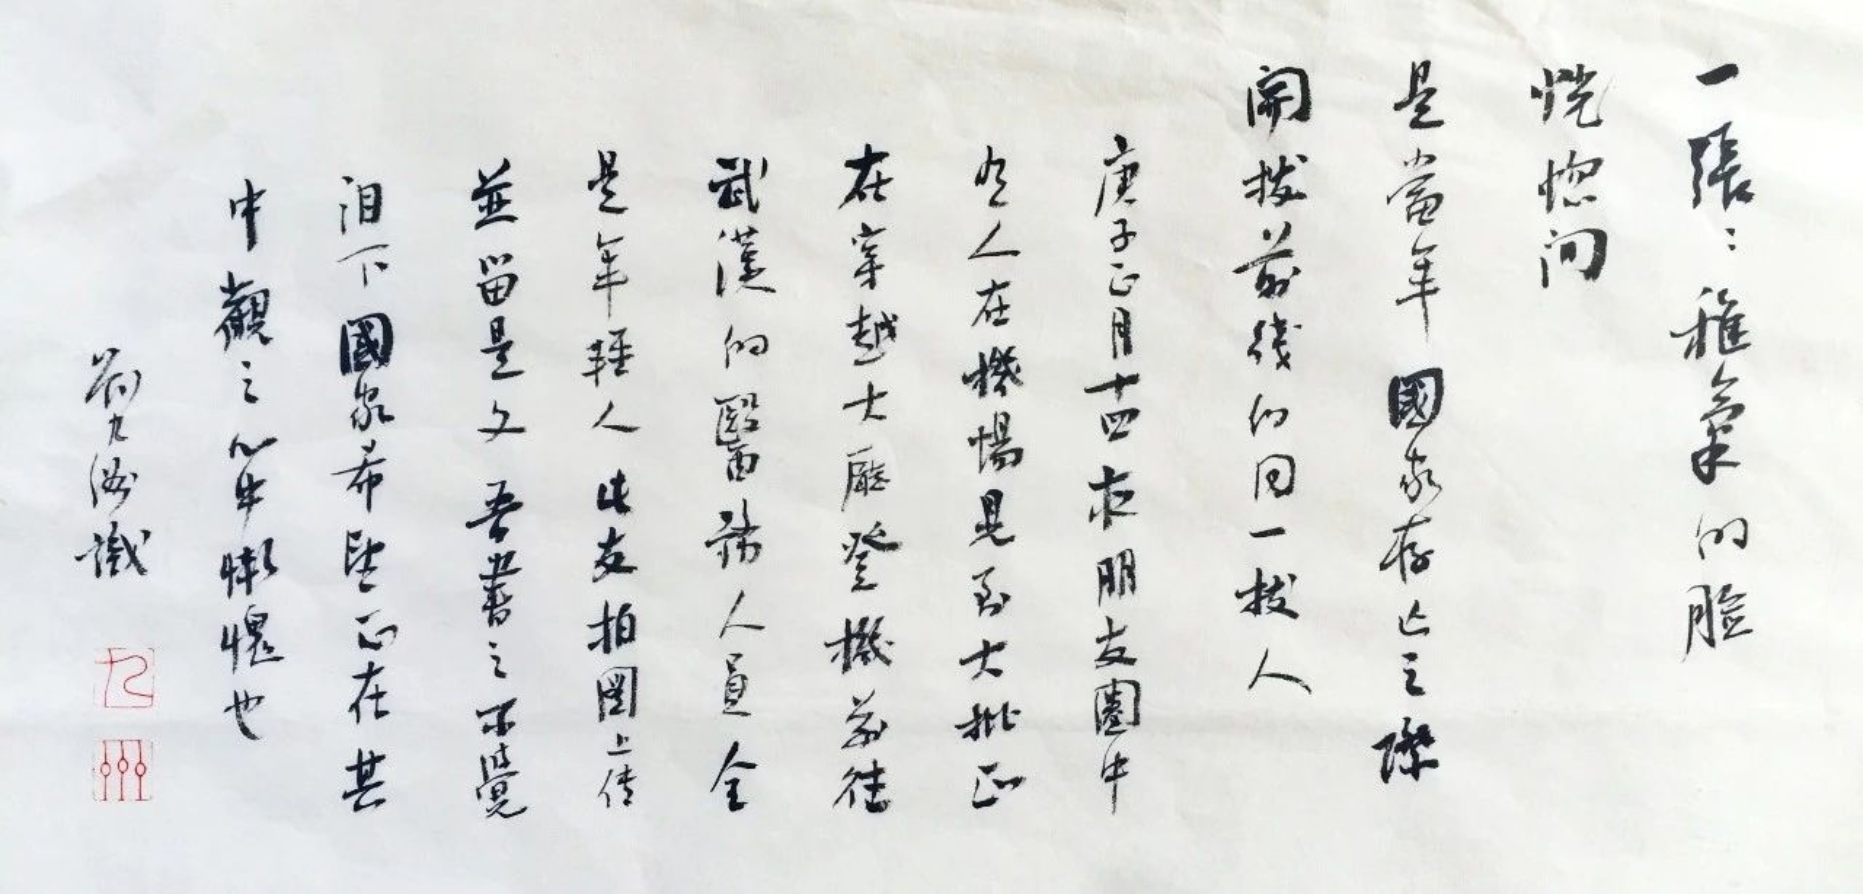 一張〻稚氣的臉
恍惚间
是當年國家存亡之際
開拔前线的同一拔人
庚子正月十四夜朋友圈中
有人在機場見到大批正
在穿越大廳登機前往
武漢的醫務人員全
是年輕人此友拍圖上传
並留是文吾書之不覺
泪下國家希望正在其
中觀之心中慚愧也
劉九洲識
九
州